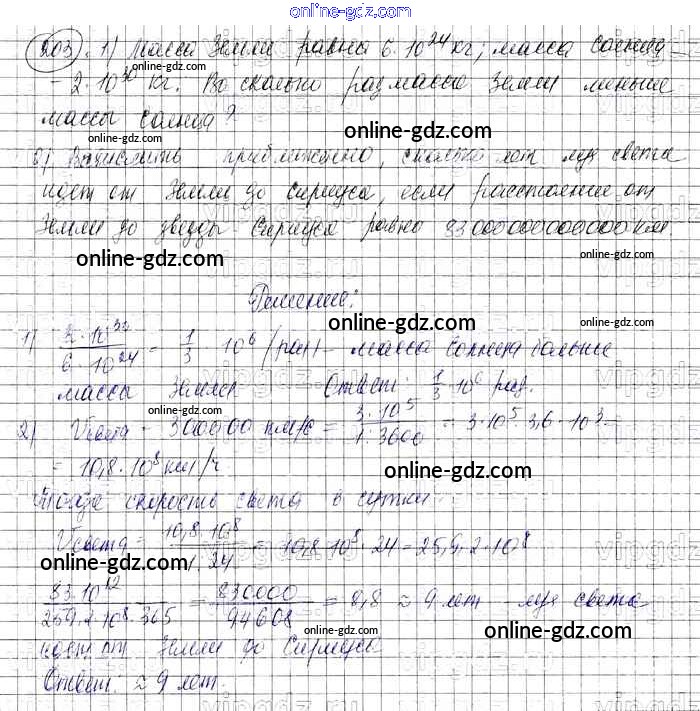 online-gdz.com
203. 1) Масса Земли равна 6·10²⁴ кг; масса солнца –
online-gdz.com
– 2·10³⁰ кг. Во сколько раз масса Земли меньше
online-gdz.com
массы солнца?
online-gdz.com online-gdz.com
2) Вычислить приближенно, сколько лет луч света
идет от Земли до Сириуса, если расстояние от
Земли до звезды Сириуса равно 83000000000000 км.
online-gdz.com online-gdz.com
Решение:
online-gdz.com online-gdz.com
1) = 1/3 · 10⁶ (раз) – масса солнца больше
массы Земли Ответ: 1/3·10⁶ раз.
online-gdz.com
2) Vсвета = 300000 км/с = 3·10⁵/1:3600 = 3·10⁵·3,6·10³ =
= 10,8·10⁸ км/ч
online-gdz.com
Тогда скорость света в сутки
online-gdz.com
Vсвета = 10,8·10⁸/1:24 = 10,8·10⁸·24 = 259,2·10⁸
online-gdz.com online-gdz.com
83·10¹²/259,2·10⁸·365 = 830000/94608 = 8,8 ≈ 9 лет луч света
online-gdz.com online-gdz.com
идет от Земли до Сириуса
Ответ: ≈ 9 лет.
online-gdz.com